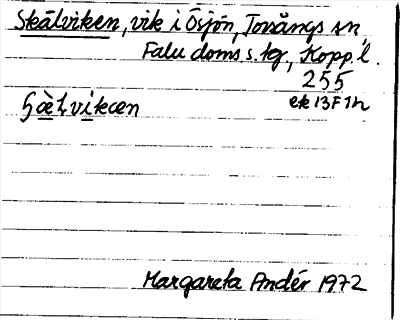 Skålviken, vik i Ösjön, Torsångs sn
Falu doms.s. tg, Kopp.l.
255
ek 13F 1h
ɧàɫvikæn
Margareta Andér 1972